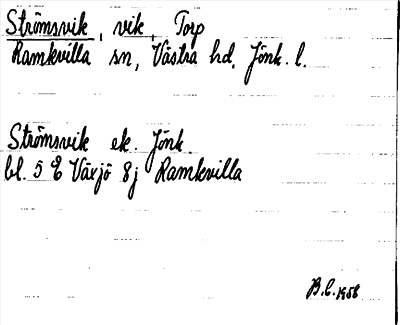 Strömsvik, vik, Torp
Ramkvilla sn, Västra hd, Jönk. l.
Strömsvik ek. Jönk.
bl. 5 E Växjö 8j Ramkvilla
B.C. 1958